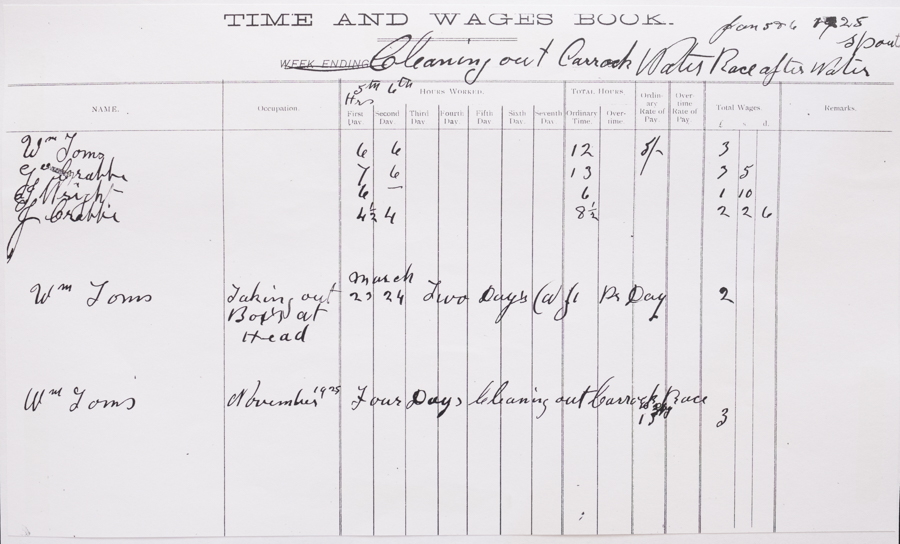 TIME AND WAGES BOOK.
Jan 5 & 6 1925
Spout
WEEK ENDING Cleaning out Carrock Water Race after Water
5th 6th
Hrs
NAME. Occupation. HOURS WORKED. TOTAL HOURS. Ordinary Rate of Pay. Overtime Rate of Pay. Total Wages. Remarks.
First Day. Second Day. Third Day. Fourth Day. Fifth Day. Sixth Day. Seventh Day. Ordinary Time. Overtime. £ s. d.
Wm Toms 6 6 12 5/- 3
Crabbe 7 6 13 3 5
Wright 6 — 6 1 10
J Crabbe 4½ 4 8½ 2 2 6
March
Wm Toms Taking out 23 24 Two Days @ £1 Pr Day 2
Boxs at
Head
Wm Toms November 1925 Four Days Cleaning out Carrock Race
15 3